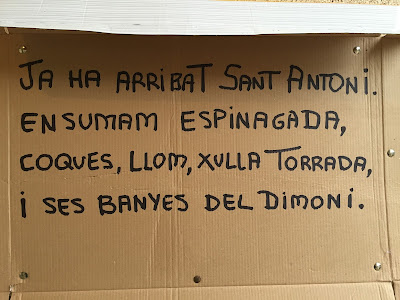 JA HA ARRIBAT SANT ANTONI.
ENSUMAM ESPINAGADA,
COQUES, LLOM, XULLA TORRADA,
i SES BANYES DEL DIMONI.